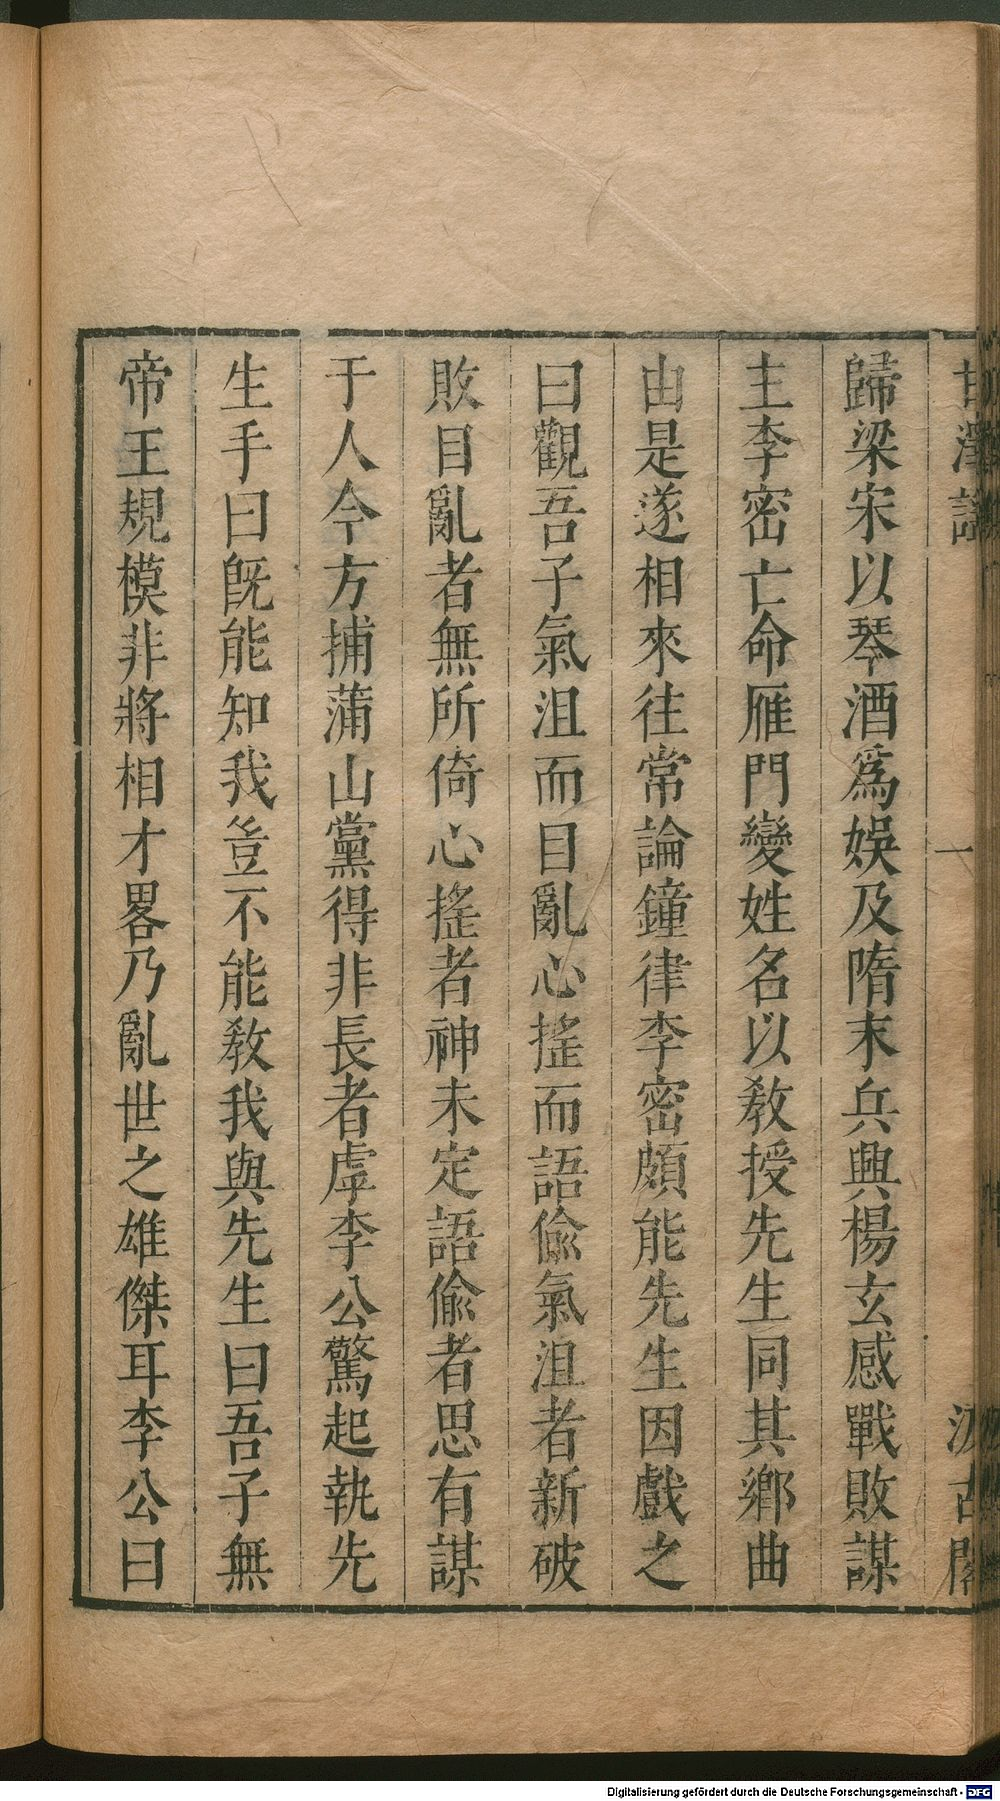 甘澤謠 一 汲古閣
歸梁宋以琴酒爲娛及隋末兵興楊玄感戰敗謀
主李密亡命雁門變姓名以教授先生同其鄉曲
由是遂相來往常論鐘律李密頗能先生因戲之
曰觀吾子氣沮而目亂心搖而語偸氣沮者新破
敗目亂者無所倚心搖者神未定語偸者思有謀
于人今方捕蒲山黨得非長者虖李公驚起執先
生手曰旣能知我豈不能敎我與先生曰吾子無
帝王規模非將相才畧乃亂世之雄傑耳李公曰
Digitalisierung gefördert durch die Deutsche Forschungsgemeinschaft - DFG